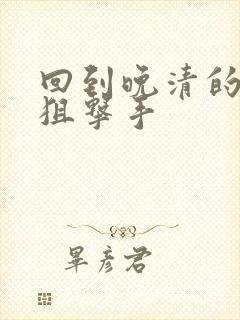 回到晚清的
狙撃手
畢彦君